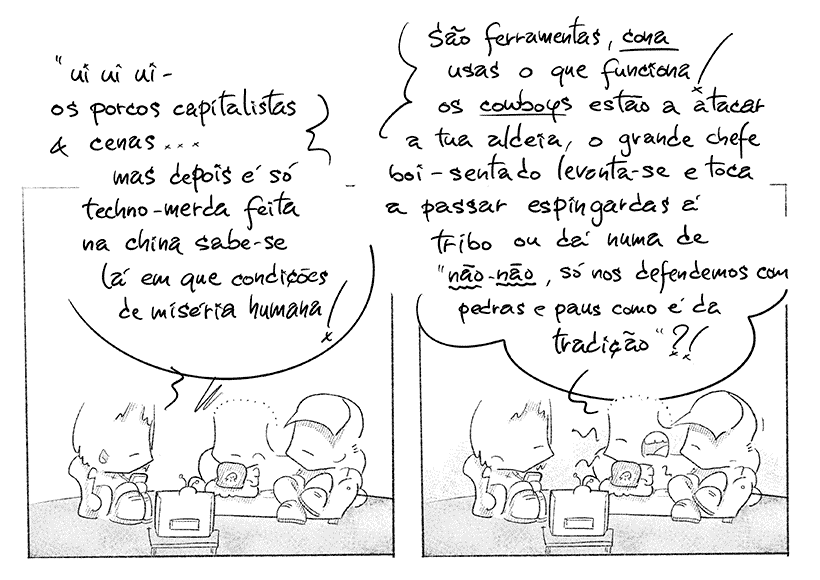 "ui ui ui -
os porcos capitalistas
& cenas...
mas depois é só
techno-merda feita
na china sabe-se
lá em que condições
de miséria humana!
São ferramentas, cona
usas o que funciona!
os cowboys estão a atacar
a tua aldeia, o grande chefe
boi-sentado levanta-se e toca
a passar espingardas á
tribo ou dá numa de
"não-não, só nos defendemos com
pedras e paus como é da
tradição"?!